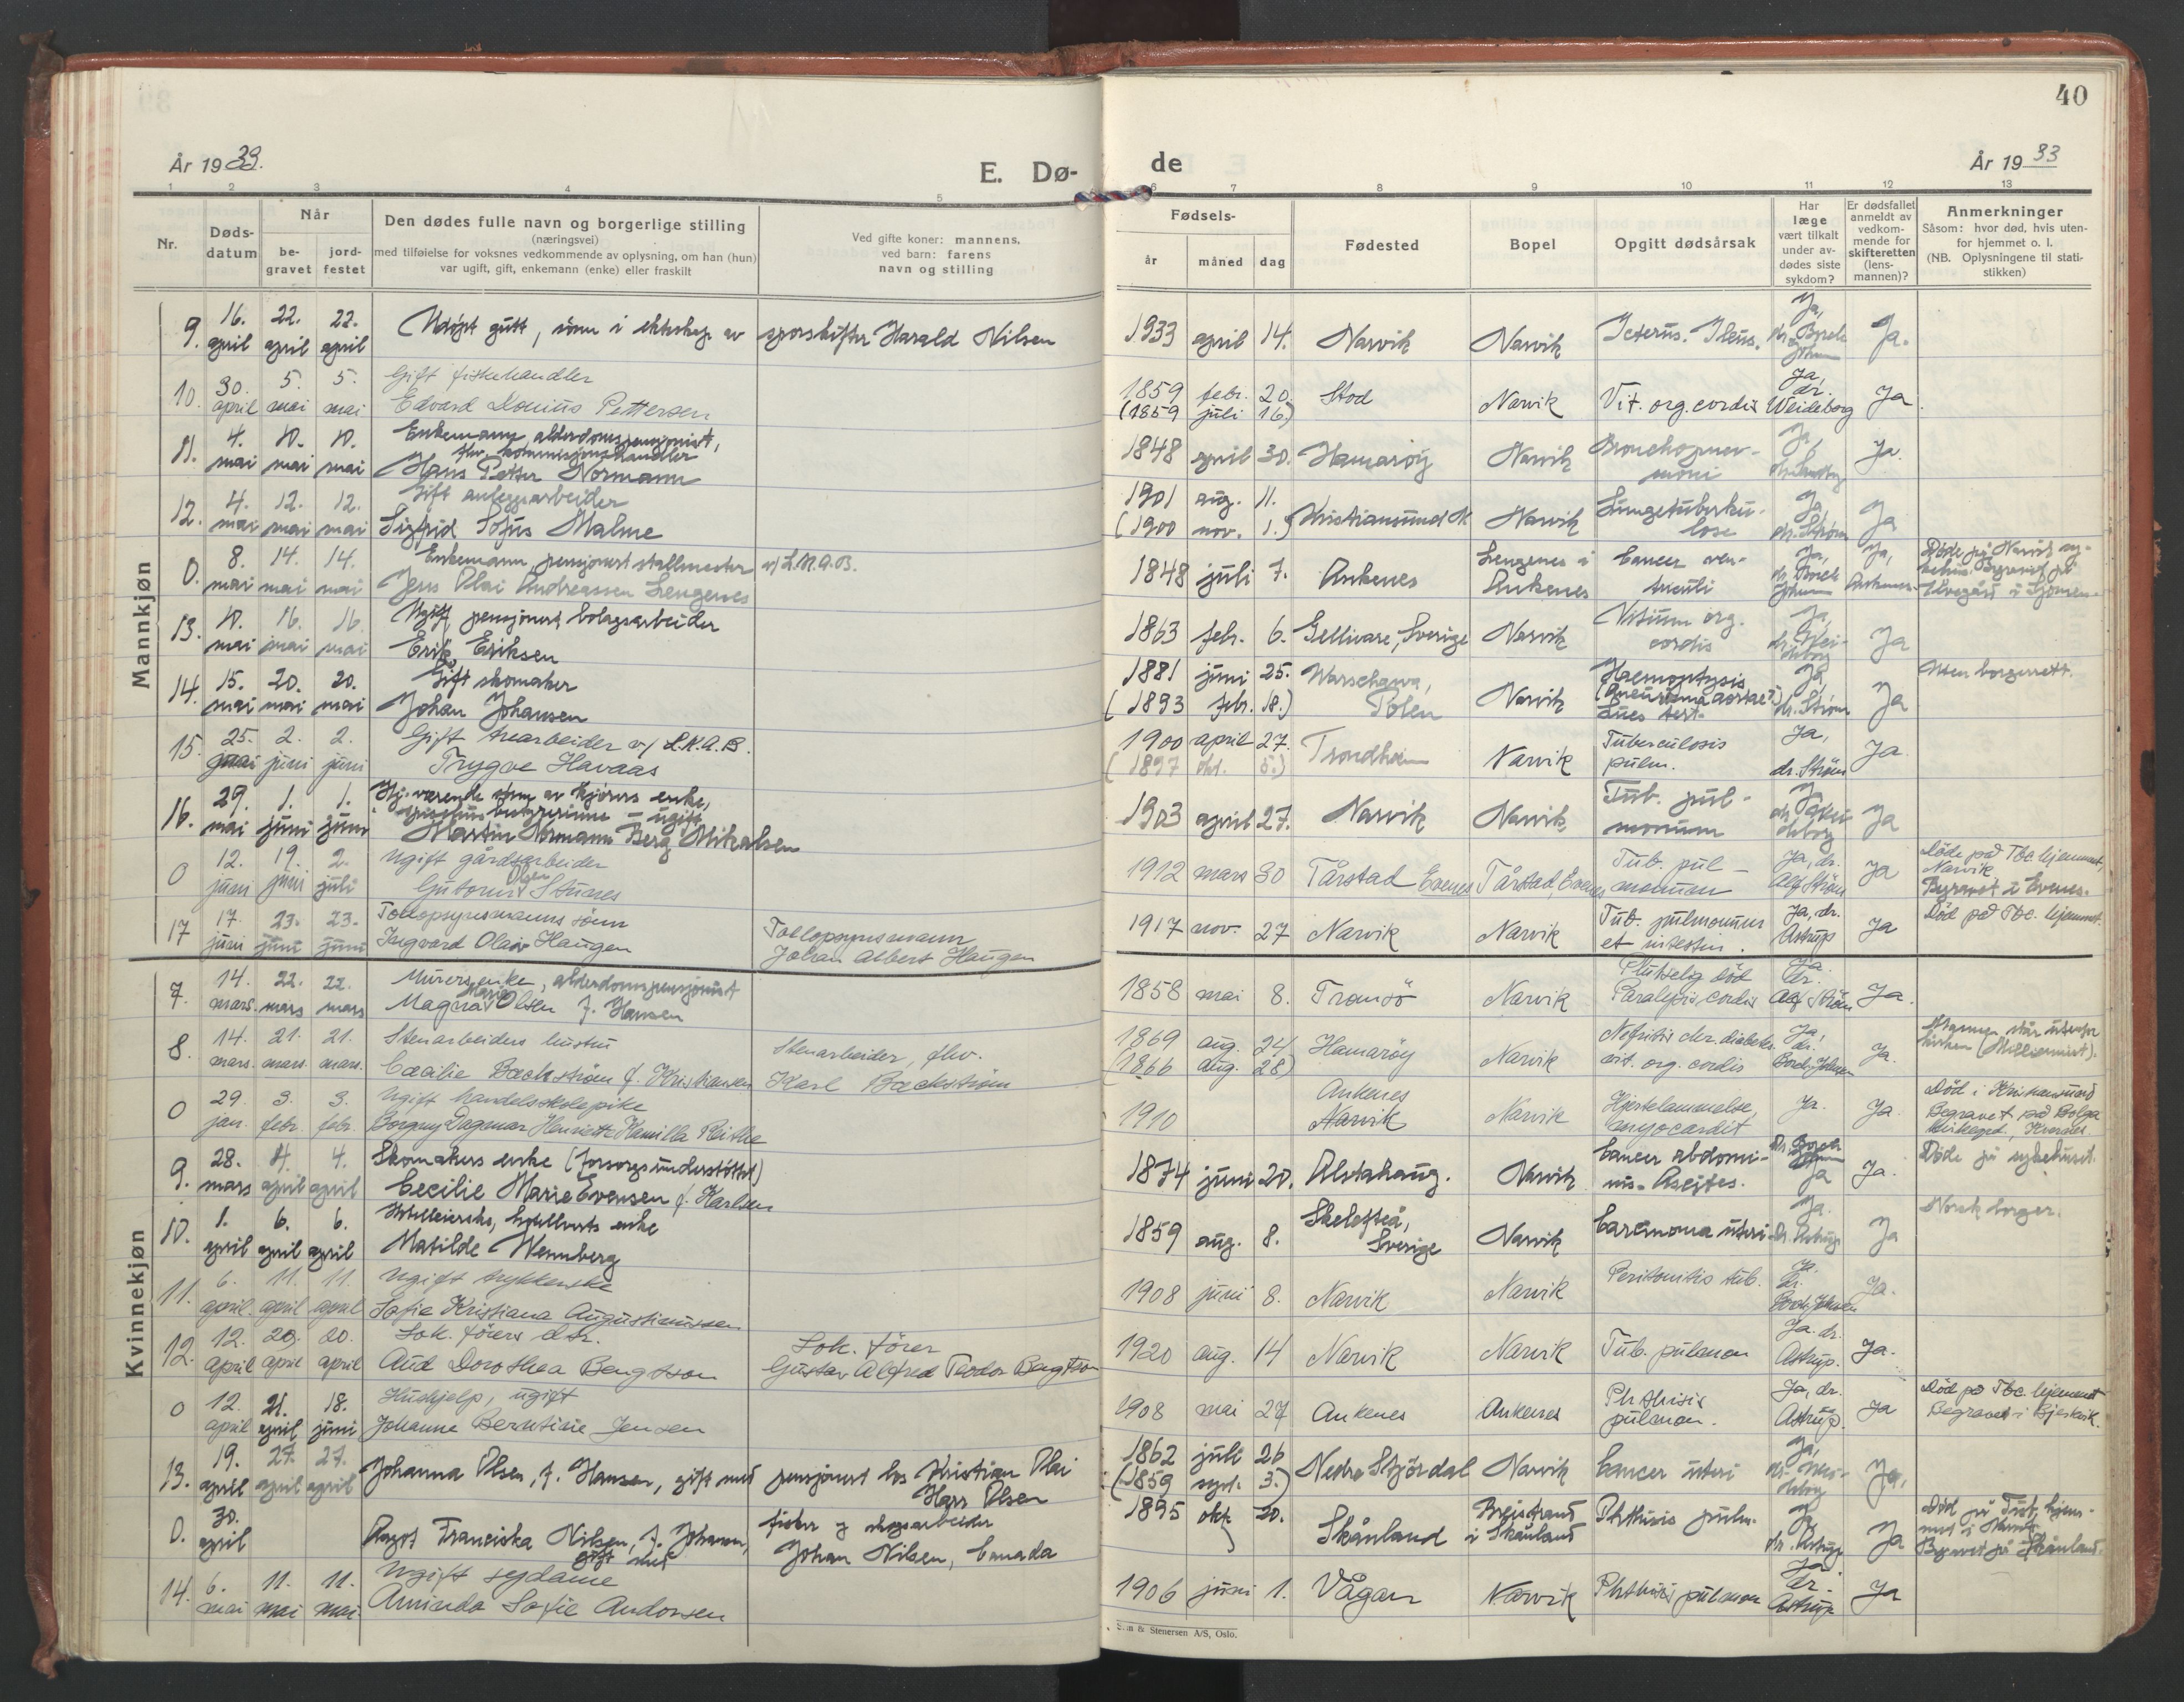 40
År 1933.
E. Dø-
de
År 1933
1 2 3 4 5 6 7 8 9 10 11 12 13
Nr.
Døds-
datum
Når
be-
gravet
jord-
festet
Den dødes fulle navn og borgerlige stilling
(næringsvei)
med tilføielse for voksnes vedkommende av oplysning, om han (hun)
var ugift, gift, enkemann (enke) eller fraskilt
Ved gifte koner: mannens,
ved barn: farens
navn og stilling
Fødsels-
år
måned
dag
Fødested
Bopel
Opgitt dødsårsak
Har
læge
vært tilkalt
under av-
dødes siste
sykdom?
Er dødsfallet
anmeldt av
vedkom-
mende for
skifteretten
(lens-
mannen)?
Anmerkninger
Såsom: hvor død, hvis uten-
for hjemmet o. l.
(NB. Oplysningene til stati-
stikken)
Mannkjøn
9. 16. april 22. april 22. april Udøpt gutt, sønn i ekteskap av sporskifter Harald Nilsen 1933 april 14. Narvik Narvik Icterus. Ileus. Ja, Ja.
10. 30. april 5. mai 5. mai Gift fiskehandler
Edvard Pettersen 1859 febr. 20. Stod Narvik Vit. org. cordis Ja, dr. Weideborg Ja
(1859 juli 16.)
11. 4. mai 10. mai 10. mai Enkemann, alderdomspensjonist,
fhv. kommisjonshandler
Hans Petter Normann 1848 april 30. Hamarøy Narvik Bronchopneu-
moni Ja, Ja.
12. 4. mai 12. mai 12. mai Gift anleggsarbeider
Sigfrid Sofus Malme 1901 aug. 11. Kristiansund N. Narvik Lungetuberku-
lose Ja, dr. Strøm Ja
(1900 nov. 1.)
0. 8. mai 14. mai 14. mai Enkemann, pensjonert stallmester v/ L.K.A.B.
Jens Olai Andreassen Lengenes 1848 juli 7. Ankenes Lengenes i
Ankenes Cancer ven-
triculi Ja, Ja, Ankenes. Døde på Narvik sy-
kehus. Begravet på
Elvegård i Skjomen.
13. 10. mai 16. mai 16. mai Ugift, pensjonert bolagsarbeider
Erik Eriksen 1863 febr. 6. Gellivare, Sverige Narvik Vitium org.
cordis Ja, dr. Wei-
deborg Ja
14. 15. mai 20. mai 20. mai Gift skomaker
Johan Johansen 1881 juni 25. Warschawa,
Polen Narvik Haemoptysis
(Aneurisma aortae?)
Lues tert. Ja, dr. Strøm Ja Uten borgerrett.
(1893 febr. 18.)
15. 25. mai 2. juni 2. juni Gift arbeider v/ L.K.A.B.
Trygve Havaas 1900 april 27. Trondheim Narvik Tuberculosis
pulm. Ja, dr. Strøm Ja
(1897 okt. 5.)
16. 29. mai 1. juni 1. juni Hj. værende sønn av kjørers enke,
ugift
Martin Normann Berg Mikalsen 1903 april 27. Narvik Narvik Tub. pul-
monum Ja, dr. Wei-
deborg Ja
0 12. juni 19. juni 2. juli Ugift gårdsarbeider
Guttorm Olsen Stunes 1912 mars 30 Tårstad Evenes Tårstad, Evenes Tub. pul-
monum Ja, dr. Alf Strøm Ja Døde på Tbc. hjemmet,
Narvik
Begravet i Evenes.
17 17. juni 23. juni 23. juni Tollopsynsmanns sønn
Ingvard Olav Haugen Tollopsynsmann
Johan Albert Haugen 1917 nov. 27 Narvik Narvik Tub. pulmonum
et intestin. Ja, dr. Astrup Ja Død på Tbc. hjemmet.
Kvinnekjøn
7. 14. mars. 22. mars 22. mars Murers enke, alderdomspensjonist
Magna Marie Olsen f. Hansen 1858 mai 8. Tromsø Narvik Plutselig død
Paralysis cordis Ja. dr. Alf Strøm Ja.
8. 14. mars. 21. mars. 21. mars. Stenarbeiders hustru
Cæcilie Backstrøm f. Kristiansen Stenarbeider, fhv.
Karl Backstrøm 1869 aug. 24 Hamarøy Narvik Nefritis chr. diabetes.
vit. org. cordis Ja, dr. Borch-Johnsen Ja. Mannen står utenfor
kirken
(1866 aug. 28)
0 29. jan. 3. febr. 3. febr. Ugift handelsskolepike
Borgny Dagmar Henriette Kamilla 1910 Ankenes
Narvik Narvik Hjertelammelse,
myocardit Ja. Ja. Død i Kristiansund
Begravet på Bolga
9. 28. mars 4. april 4. april Skomakers enke (forsorgsunderstøttet)
Cecilie Marie Evensen f. Karlsen 1874 juni 20. Alstahaug. Narvik Cancer abdomi-
nis. Ascites. Ja Ja. Døde på sykehuset.
10. 1. april 6. april 6. april Hotelleierske, hotellverts enke
Matilde Wennberg 1859 aug. 8. Skelefteå,
Sverige Narvik Carcinoma uteri Ja. Dr. Astrup Ja Norsk borger.
11. 6. april 11. april 11. april Ugift trykkerske
Sofie Kristiana Augustinussen 1908 juni 8. Narvik Narvik Peritonitis tub. Ja. dr. Borch-Johnsen Ja.
12. 12. april 20. april 20. april Lok. førers dtr.
Aud Dorothea Bengtson Lok. fører
Gustav Alfred Teodor Bengtson 1920 aug. 14 Narvik Narvik Tub. pulmon Ja. dr. Astrup. Ja.
0 12. april 21. april 18. juni Hushjelp, ugift
Johanne Berntine Jensen 1908 mai 27 Ankenes Ankenes Phthisis
pulmon. Ja, dr. Astrup. Ja Død på Tbc. hjemmet
Begravet i Bjerkvik.
13. 19. april 27. april 27. april Johanna Olsen, f. Hansen, gift med pensjonert los Kristian Olai
Hars Olsen 1862 juli 26 Nedre Stjørdal Narvik Cancer uteri Ja, dr. Wei-
deborg Ja,
(1859 sept. 3.)
0. 30. april Aagot Franciska Nilsen, f. Johansen,
gift med fisker og skogsarbeider
Johan Nilsen, Canada 1895 okt. 20. Skånland Breistrand
i Skånland Phthisis pulm. Ja, dr. Astrup Ja Død på Tub. hjem-
met i
Begravet på Skånland.
14. 6. mai 11. mai 11. mai. Ugift sydame
Aminda Sofie Andorsen 1906 juni 1. Vågan Narvik Phthisis pulmon Ja. dr. Astrup Ja
& Stenersen A/S, Oslo.